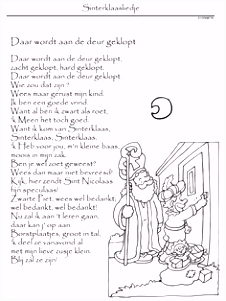 Sinterklaasliedje
Daar wordt aan de deur geklopt
Daar wordt aan de deur geklopt,
zacht geklopt, hard geklopt,
Daar wordt aan de deur geklopt
Wie zou dat zijn?
Wees maar gerust mijn kind.
Ik ben een goede vrind.
Want al ben ik zwart als roet,
ik Meen het toch goed.
Want ik kom van Sinterklaas,
Sinterklaas, Sinterklaas.
Ik Heb voor jou, m'n kleine baas,
moois in mijn zak.
Ben je wel zoet geweest?
Wees dan maar niet bevreesd!
Kijk, hier zendt Sint Nicolaas
fijn speculaas!
Zwarte Piet, wees wel bedankt,
wel bedankt, wel bedankt!
Nu zal ik aan 't leren gaan,
daar kan j' op aan.
Borstplaatjes, groot in tal,
Ik deel ze vanavond al
met mijn lieve zusje klein.
Blij zal ze zijn!